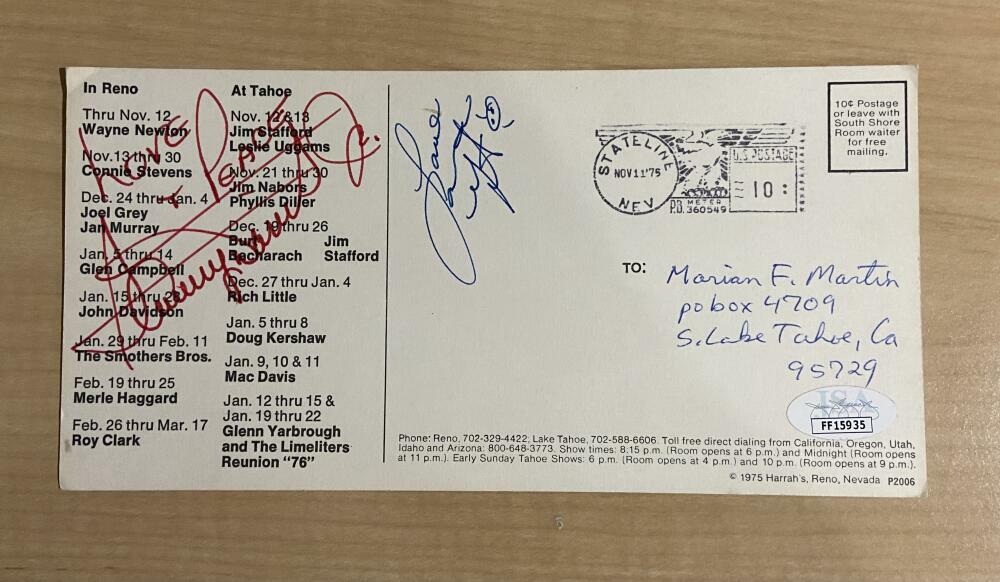 In Reno
Thru Nov. 12
Wayne Newton
Nov. 13 thru 30
Connie Stevens
Dec. 24 thru Jan. 4
Joel Grey
Jan Murray
Jan. 5 thru 14
Glen Campbell
Jan. 15 thru 28
John Davidson
Jan. 29 thru Feb. 11
The Smothers Bros.
Feb. 19 thru 25
Merle Haggard
Feb. 26 thru Mar. 17
Roy Clark
At Tahoe
Nov. 12 & 13
Jim Stafford
Leslie Uggams
Nov. 21 thru 30
Jim Nabors
Phyllis Diller
Dec. 19 thru 26
Burt Jim
Bacharach Stafford
Dec. 27 thru Jan. 4
Rich Little
Jan. 5 thru 8
Doug Kershaw
Jan. 9, 10 & 11
Mac Davis
Jan. 12 thru 15 &
Jan. 19 thru 22
Glenn Yarbrough
and The Limeliters
Reunion "76"
LOVE
+ PEACE
Sammy Davis Jr.
STATELINE
NOV 11'75
NEV.
U.S. POSTAGE
10
P.B. METER
360549
10¢ Postage
or leave with
South Shore
Room waiter
for free
mailing.
TO:
Marian F. Martin
po box 4709
S. Lake Tahoe, Ca
95729
JSA
FF15935
Phone: Reno, 702-329-4422; Lake Tahoe, 702-588-6606. Toll free direct dialing from California, Oregon, Utah,
Idaho and Arizona: 800-648-3773. Show times: 8:15 p.m. (Room opens at 6 p.m.) and Midnight (Room opens
at 11 p.m.). Early Sunday Tahoe Shows: 6 p.m. (Room opens at 4 p.m.) and 10 p.m. (Room opens at 9 p.m.).
© 1975 Harrah's, Reno, Nevada P2006